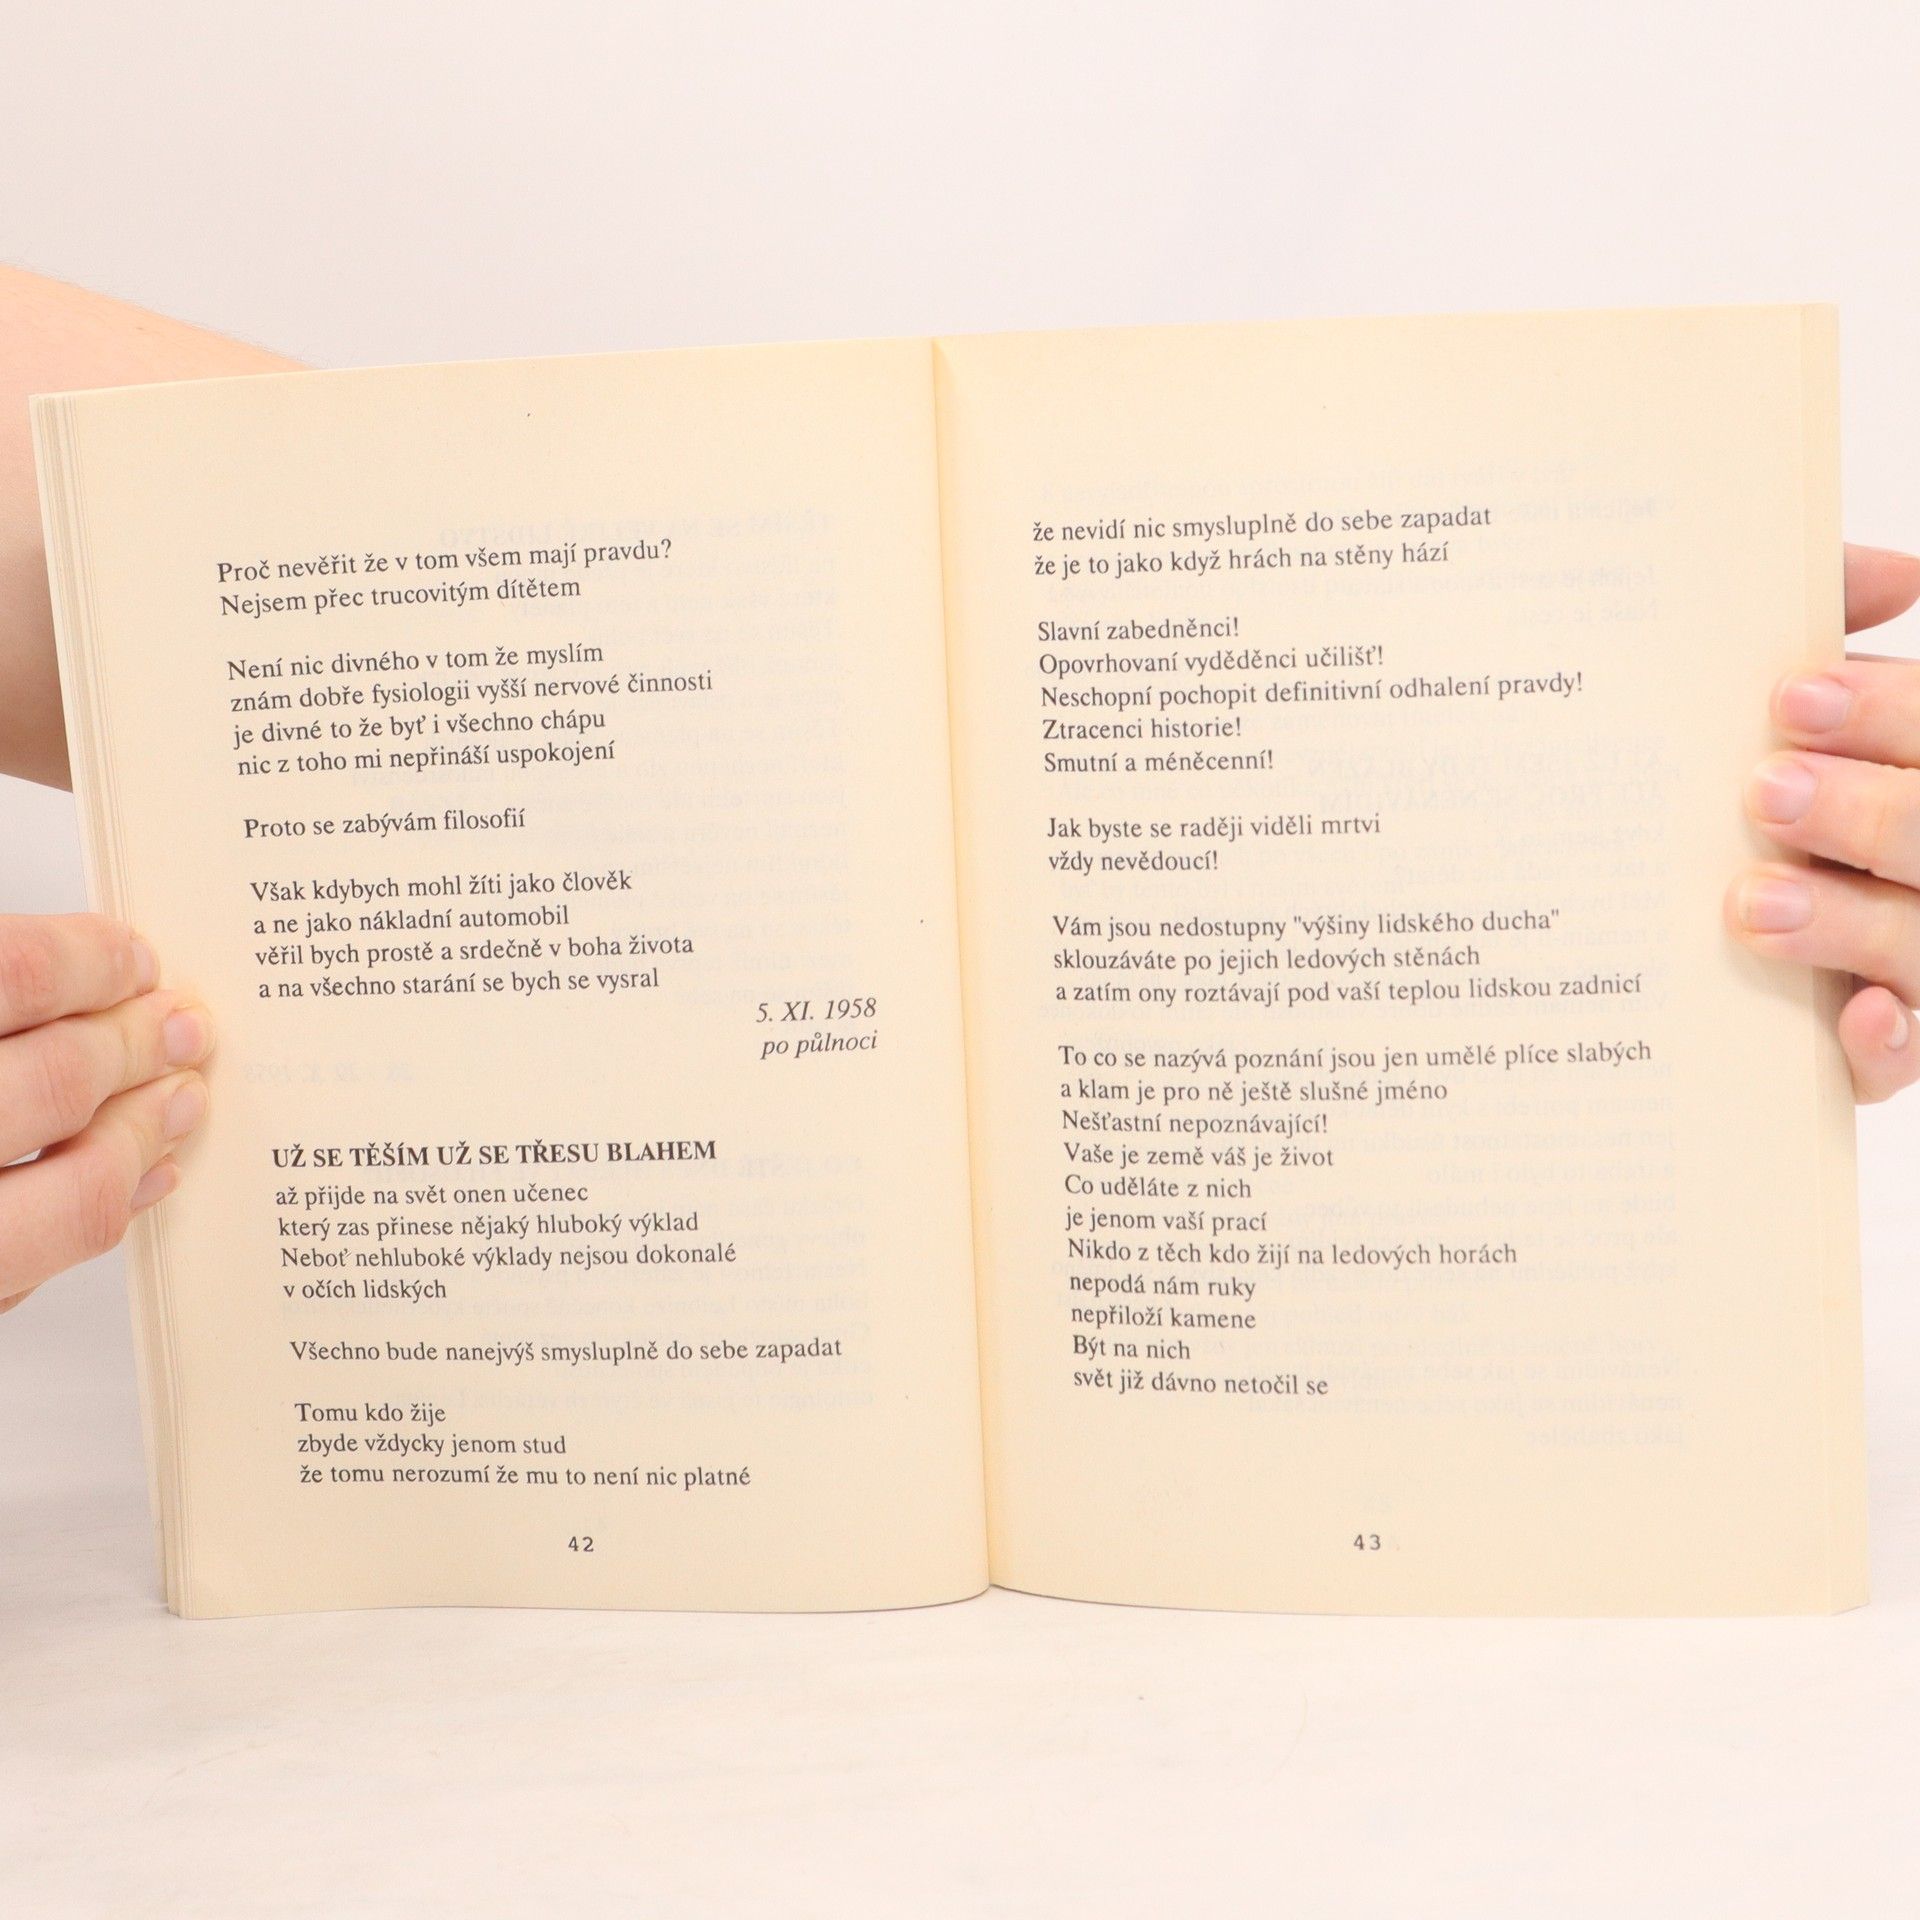 Proč nevěřit že v tom všem mají pravdu?
Nejsem přec trucovitým dítětem
Není nic divného v tom že myslím
znám dobře fysiologii vyšší nervové činnosti
je divné to že byť i všechno chápu
nic z toho mi nepřináší uspokojení
Proto se zabývám filosofií
Však kdybych mohl žíti jako člověk
a ne jako nákladní automobil
věřil bych prostě a srdečně v boha života
a na všechno starání se bych se vysral
5. XI. 1958
po půlnoci
UŽ SE TĚŠÍM UŽ SE TŘESU BLAHEM
až přijde na svět onen učenec
který zas přinese nějaký hluboký výklad
Neboť nehluboké výklady nejsou dokonalé
v očích lidských
Všechno bude nanejvýš smysluplně do sebe zapadat
Tomu kdo žije
zbyde vždycky jenom stud
že tomu nerozumí že mu to není nic platné
42
že nevidí nic smysluplně do sebe zapadat
že je to jako když hrách na stěny hází
Slavní zabedněnci!
Opovrhovaní vyděděnci učilišť!
Neschopní pochopit definitivní odhalení pravdy!
Ztracenci historie!
Smutní a méněcenní!
Jak byste se raději viděli mrtvi
vždy nevědoucí!
Vám jsou nedostupny "výšiny lidského ducha"
sklouzáváte po jejich ledových stěnách
a zatím ony roztávají pod vaší teplou lidskou zadnicí
To co se nazývá poznání jsou jen umělé plíce slabých
a klam je pro ně ještě slušné jméno
Nešťastní nepoznávající!
Vaše je země váš je život
Co uděláte z nich
je jenom vaší prací
Nikdo z těch kdo žijí na ledových horách
nepodá nám ruky
nepřiloží kamene
Být na nich
svět již dávno netočil se
43